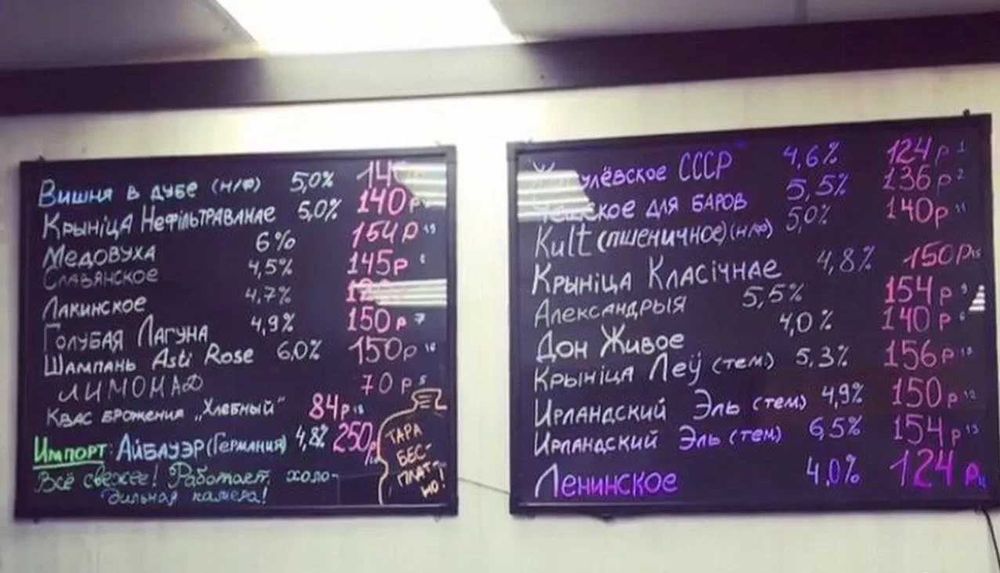 Вишня в дубе (н/ф) 5,0%
Крынiца Нефiльтраванае 5,0% 140р
Медовуха 6% 154р 13
Славянское 4,5% 145р
Лакинское 4,7%
Голубая Лагуна 4,9% 150р 7
Шампань Asti Rose 6,0% 150р
Лимонад 70р 5
Квас брожения „Хлебный" 84р
Импорт: Айбауэр (Германия) 4,8% 250р
Всё свежее! Работает холо-
дильная камера!
ТАРА
БЕС-
ПЛАТ-
НО!
СССР 4,6% 124р 1
для баров 5,5% 136р 2
Kult (пшеничное) (н/ф) 5,0% 140р 11
Крынiца Класiчнае 4,8% 150р
Александрыя 5,5% 154р 9
Дон Живое 4,0% 140р
Крынiца Леў (тем.) 5,3% 156р
Ирландский Эль (тем) 4,9% 150р 12
Ирландский Эль (тем) 6,5% 154р
Ленинское 4,0% 124р